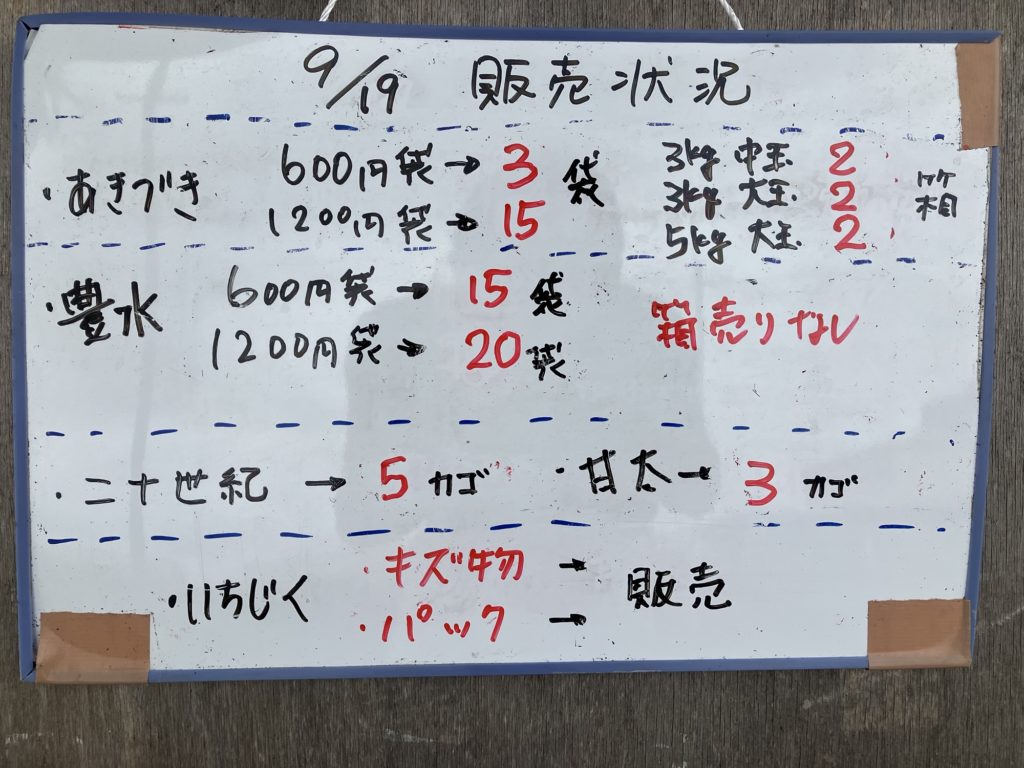 9/19 販売状況
・あきづき
600円袋→3
1200円袋→15
袋
3kg 中玉 2
3kg 大玉 2
5kg 大玉 2
箱
・豊水
600円袋→15袋
1200円袋→20袋
箱売りなし
・二十世紀→5カゴ
・甘太→3カゴ
・いちじく
・キズ物→
・パック→
販売